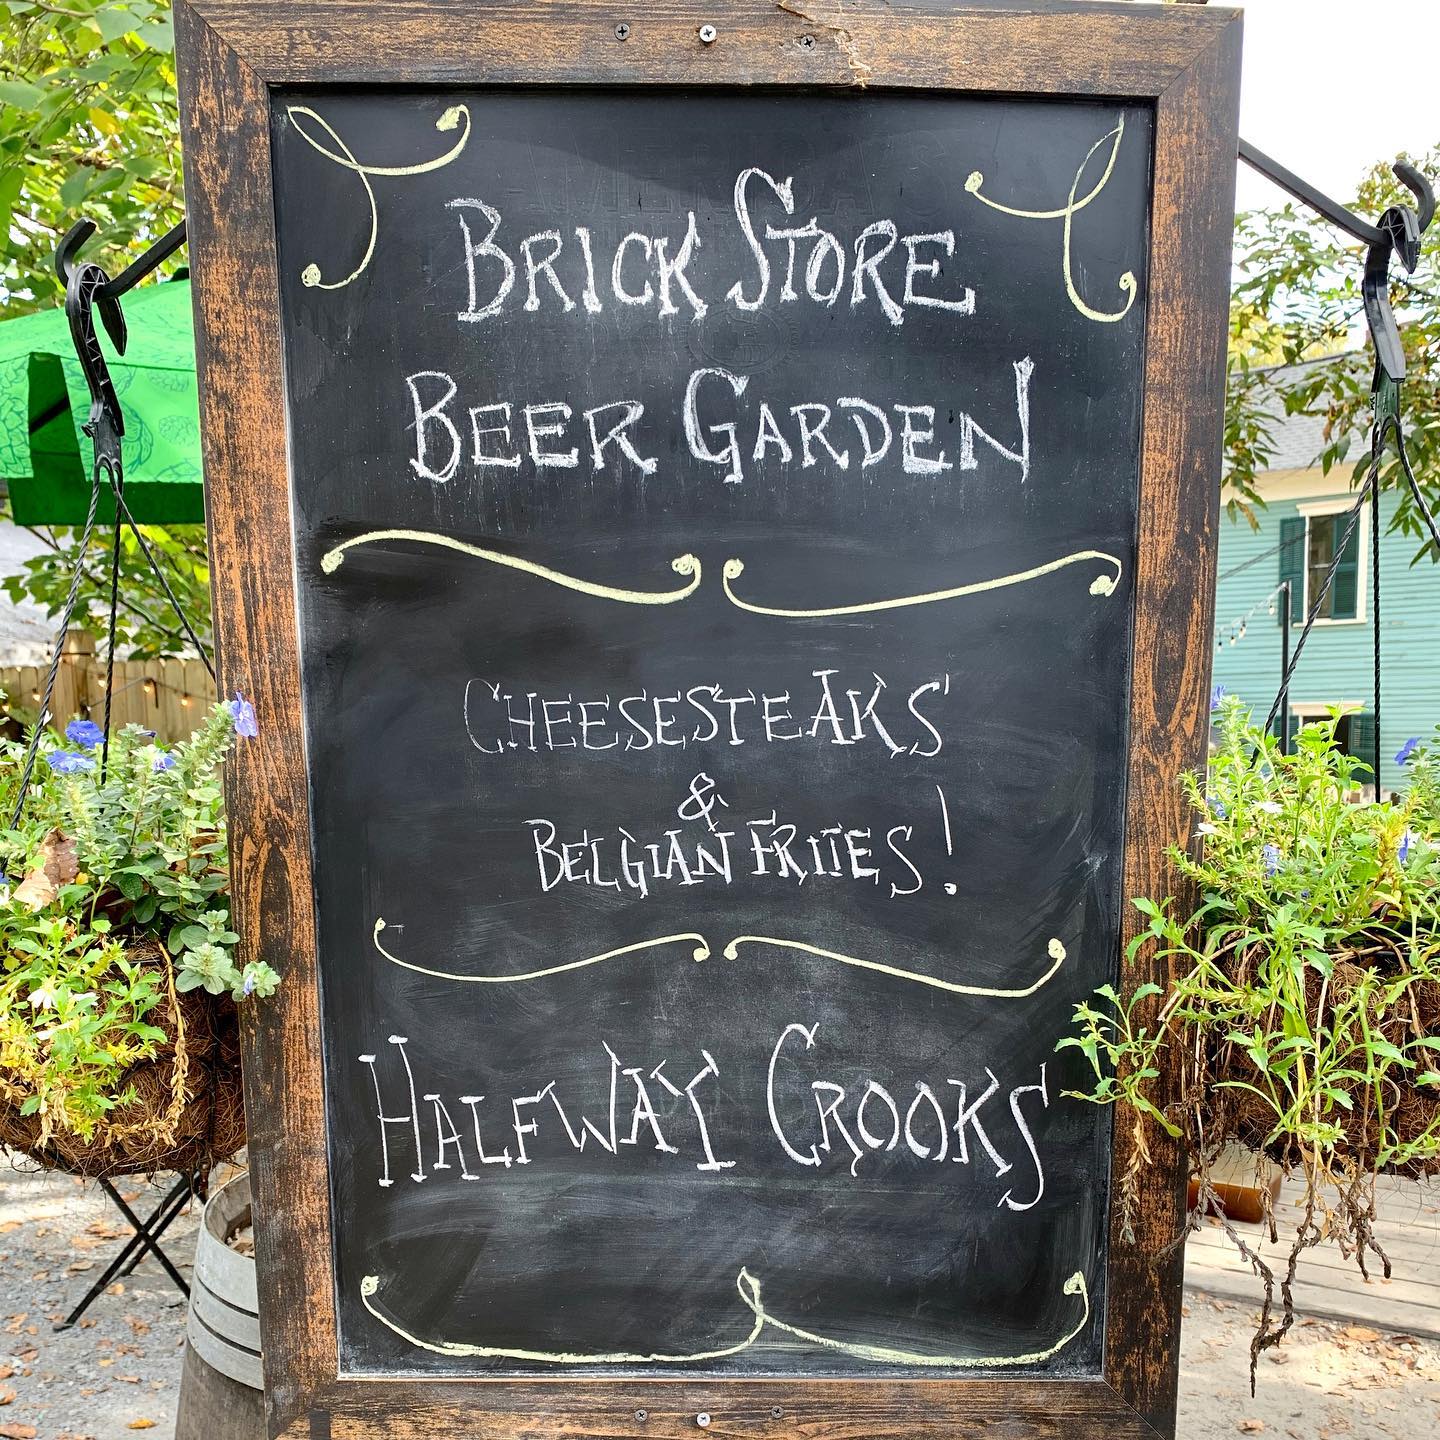 BRICK STORE
BEER GARDEN
CHEESESTEAKS
&
BELGIAN FRITES!
HALFWAY CROOKS